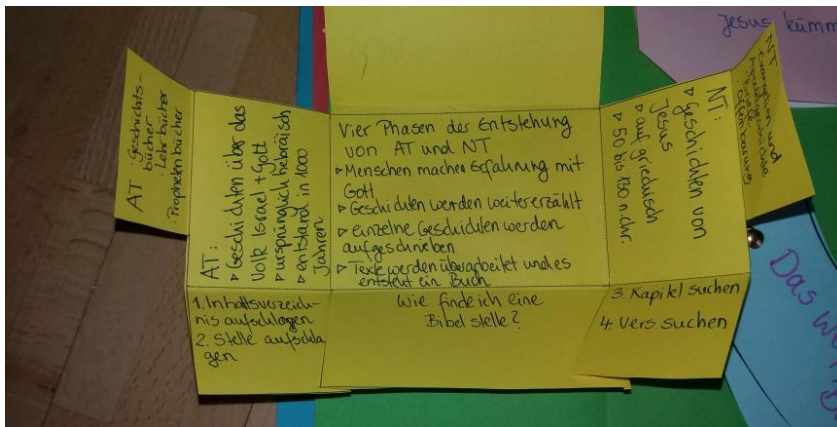 Jesus kümm
AT Geschichts-
bücher
· Lehrbücher
· Prophetenbücher
AT:
▹ Geschichten über das
Volk Israel + Gott
▹ ursprünglich hebräisch
▹ entstand in 1000
Jahren
Vier Phasen der Entstehung
von AT und NT
▹ Menschen machen Erfahrung mit
Gott
▹ Geschichten werden weitererzählt
▹ einzelne Geschichten werden
aufgeschrieben
▹ Texte werden überarbeitet und es
entsteht ein Buch
NT:
▹ Geschichten von
Jesus
▹ auf griechisch
▹ 50 bis 130 n.chr.
NT
· Evangelien und
Apostelgeschichte
· Briefe
· Offenbarung
1. Inhaltsverzeich-
nis aufschlagen
2. Stelle aufschla
gen
Wie finde ich eine
Bibelstelle?
3. Kapitel suchen
4. Vers suchen
Das